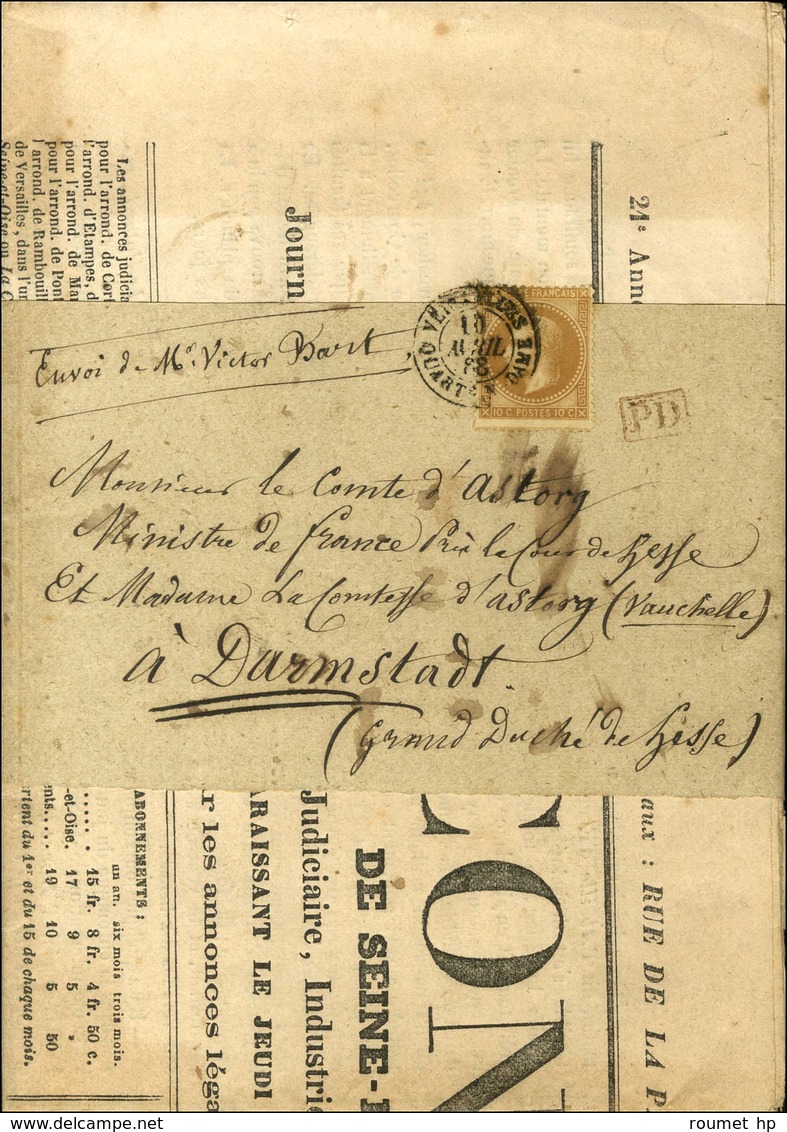 Les annonces judiciai
pour l'arrond. de Corb
l'arrond. d'Etampes, d
pour l'arrond. de Ma
pour l'arrond. de Pon
l'arrond. de Rambouil
de Versailles, dans l'un
Seine-et-Oise ou La C
Journ
21e Anné
Envoi de Mr. Victor Bart,
VERSAILLES
10
AVRIL
68
FRANÇAIS
10 C POSTES 10 C
PD
Monsieur le Comte d'Astorg
Ministre de France Près la Cour de Hesse
Et Madame La Comtesse d'Astorg (Vauchelle)
à Darmstadt
(Grand Duché de Hesse)
ABONNEMENTS :
un an. six mois trois mois.
..... 15 fr. 8 fr. 4 fr. 50 c.
-et-Oise. 17 9 5 »
ents.... 19 10 5 50
rtent du 1er et du 15 de chaque mois.
CON
DE SEINE-E
Judiciaire, Industrie
ARAISSANT LE JEUDI
r les annonces léga
aux : RUE DE LA PA
roumet hp
delcampe.net